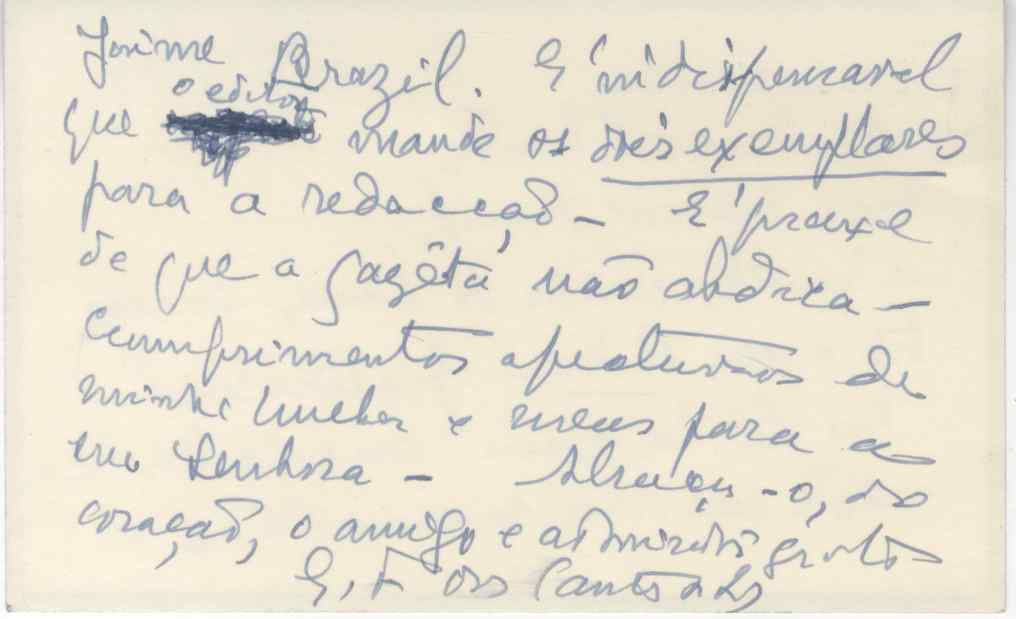 Jaime Brazil. É indispensavel
o editor
que mande os dois exemplares
para a redacção – É praxe
de que a Gazêta não abdica –
Cumprimentos afectuosos de
minha mulher e meus para a
sua Senhora – Abraça-o, do
coração, o amigo e admirador grato